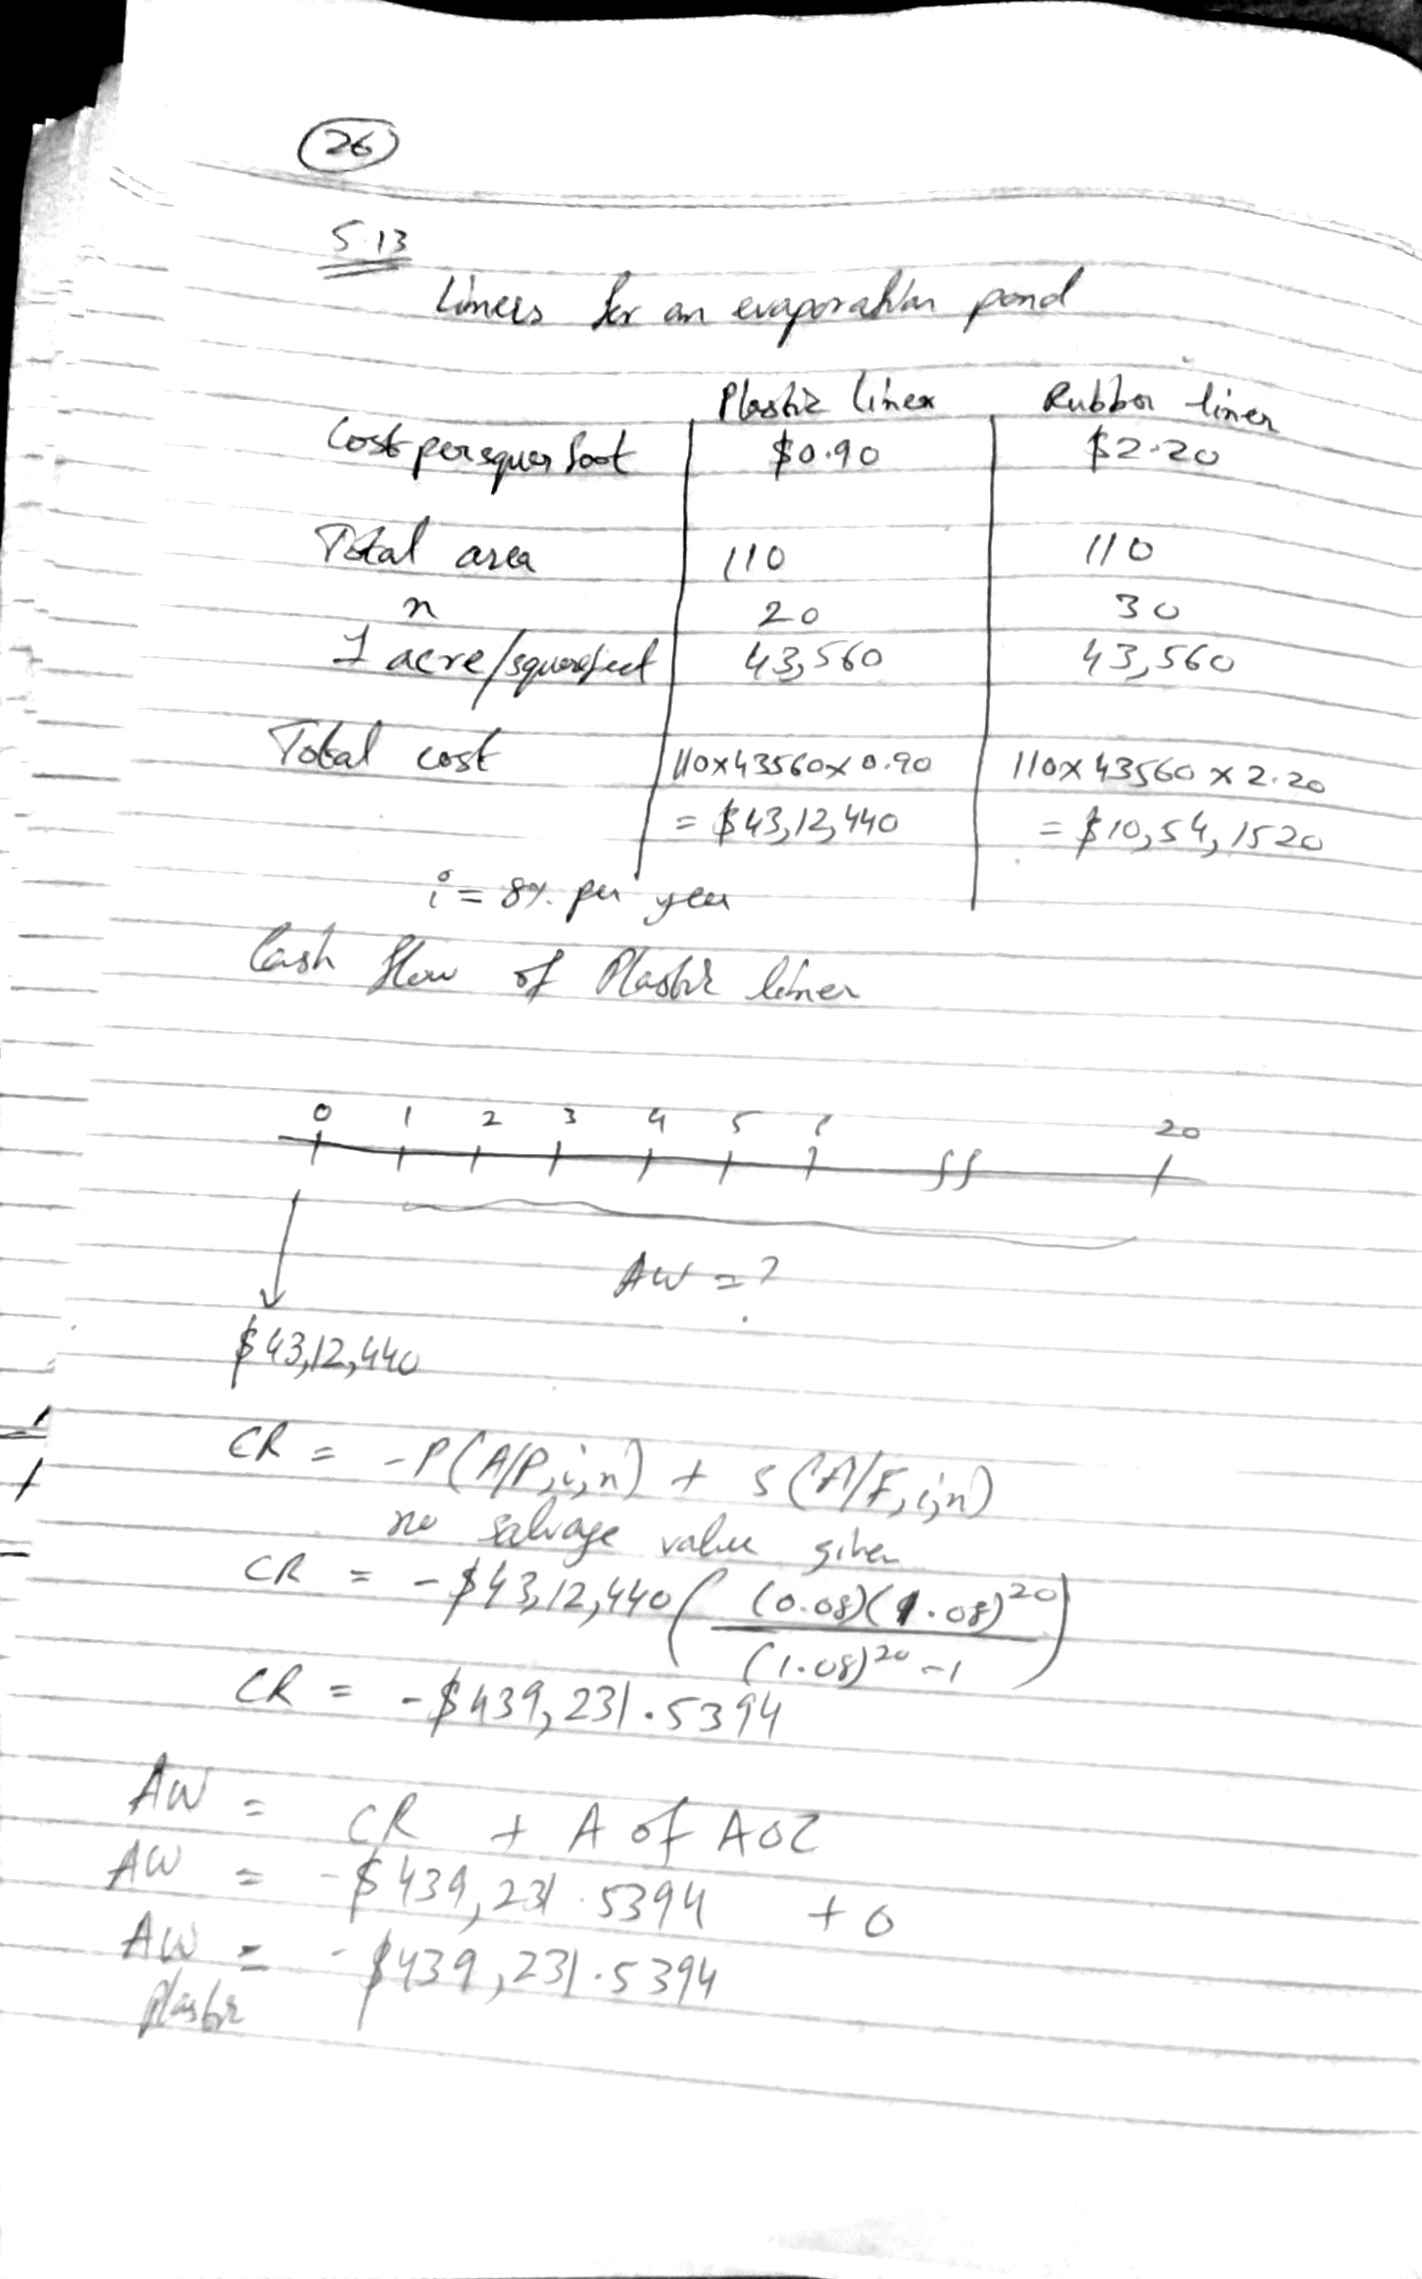 26
5.13
Liners for an evaporation pond
Plastic liner Rubber liner
Cost per squer foot $0.90 $2.20
Total area 110 110
n 20 30
1 acre/squarefeet 43,560 43,560
Total cost 110x43560x0.90 110x43560x2.20
= $43,12,440 = $10,54,1520
i = 8% per year
Cash flow of Plastic liner
0 1 2 3 4 5 20
AW = ?
$43,12,440
CR = -P(A/P,i,n) + S(A/F,i,n)
no salvage value given
CR = -$43,12,440 ( (0.08)(1.08)^20 / (1.08)^20 -1 )
CR = -$439,231.5394
AW = CR + A of AOC
AW = -$439,231.5394 + 0
AW = -$439,231.5394
Plastic